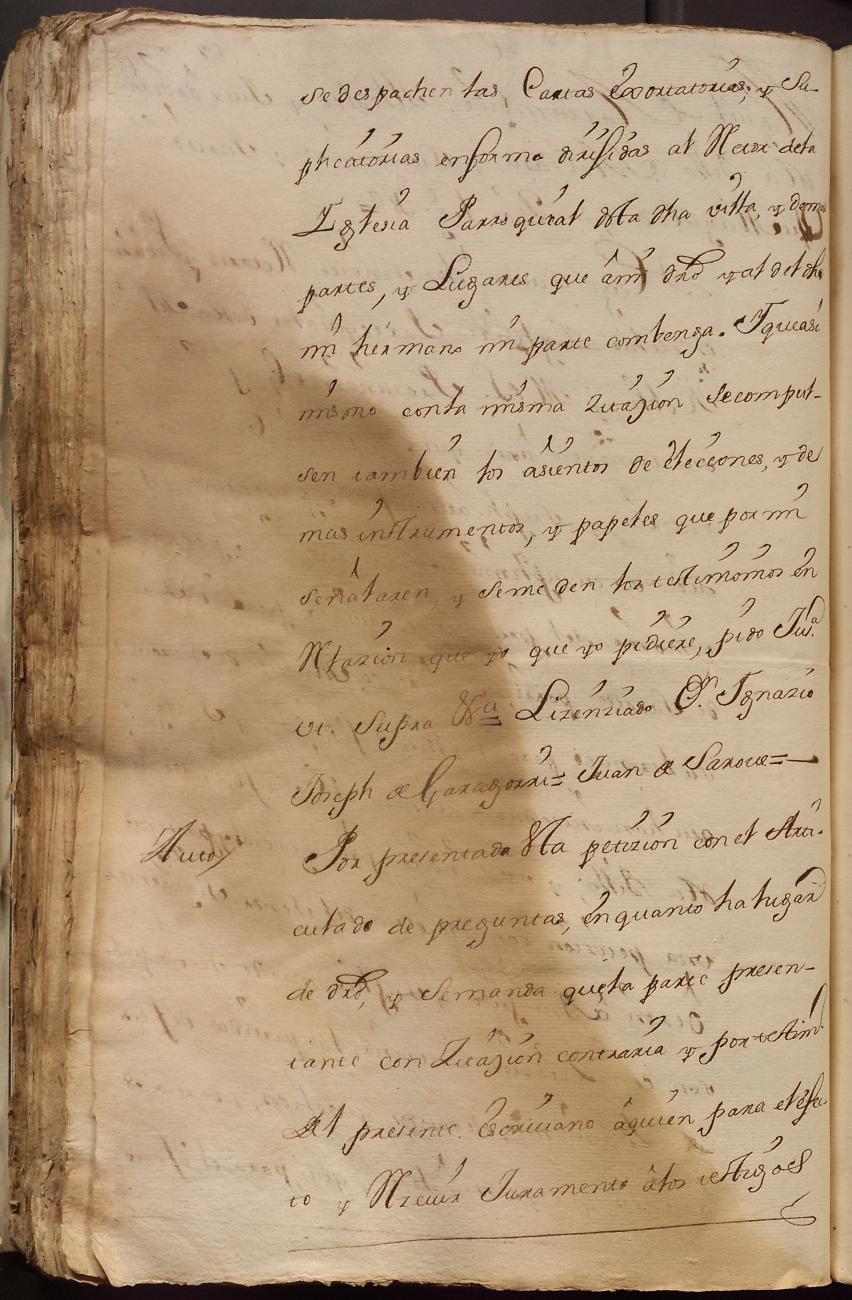 se despachen las Cartas Exortatorias, y Su-
plicatorias en forma dirijidas al Retor dela
Iglesia Parroquial desta dha villa, y demas
partes, y Lugares que âmi dro y al del dho
mi hermano mi parte combenga. Y que asi
mismo con la misma Zitazion se compul-
sen tambien los asientos de elecciones, y de
mas instrumentos, y papeles que por mi
señalaren, y se me den los testimonios en
Relazion que yo que yo pidiere, pido Jusª
ut. supra &ª Lizenziado Dn Ignazio
Joseph de Garagorri= Juan de Saroue=
Auto / Por presentada esta petizion con el Arti-
culado de preguntas, en quanto ha lugar
de dro, y se manda que la parte presen-
tante con Zitazion contraria y por testimo
del presente escrivano â quien para el efec
to y Recivir Juramento âlos testigos